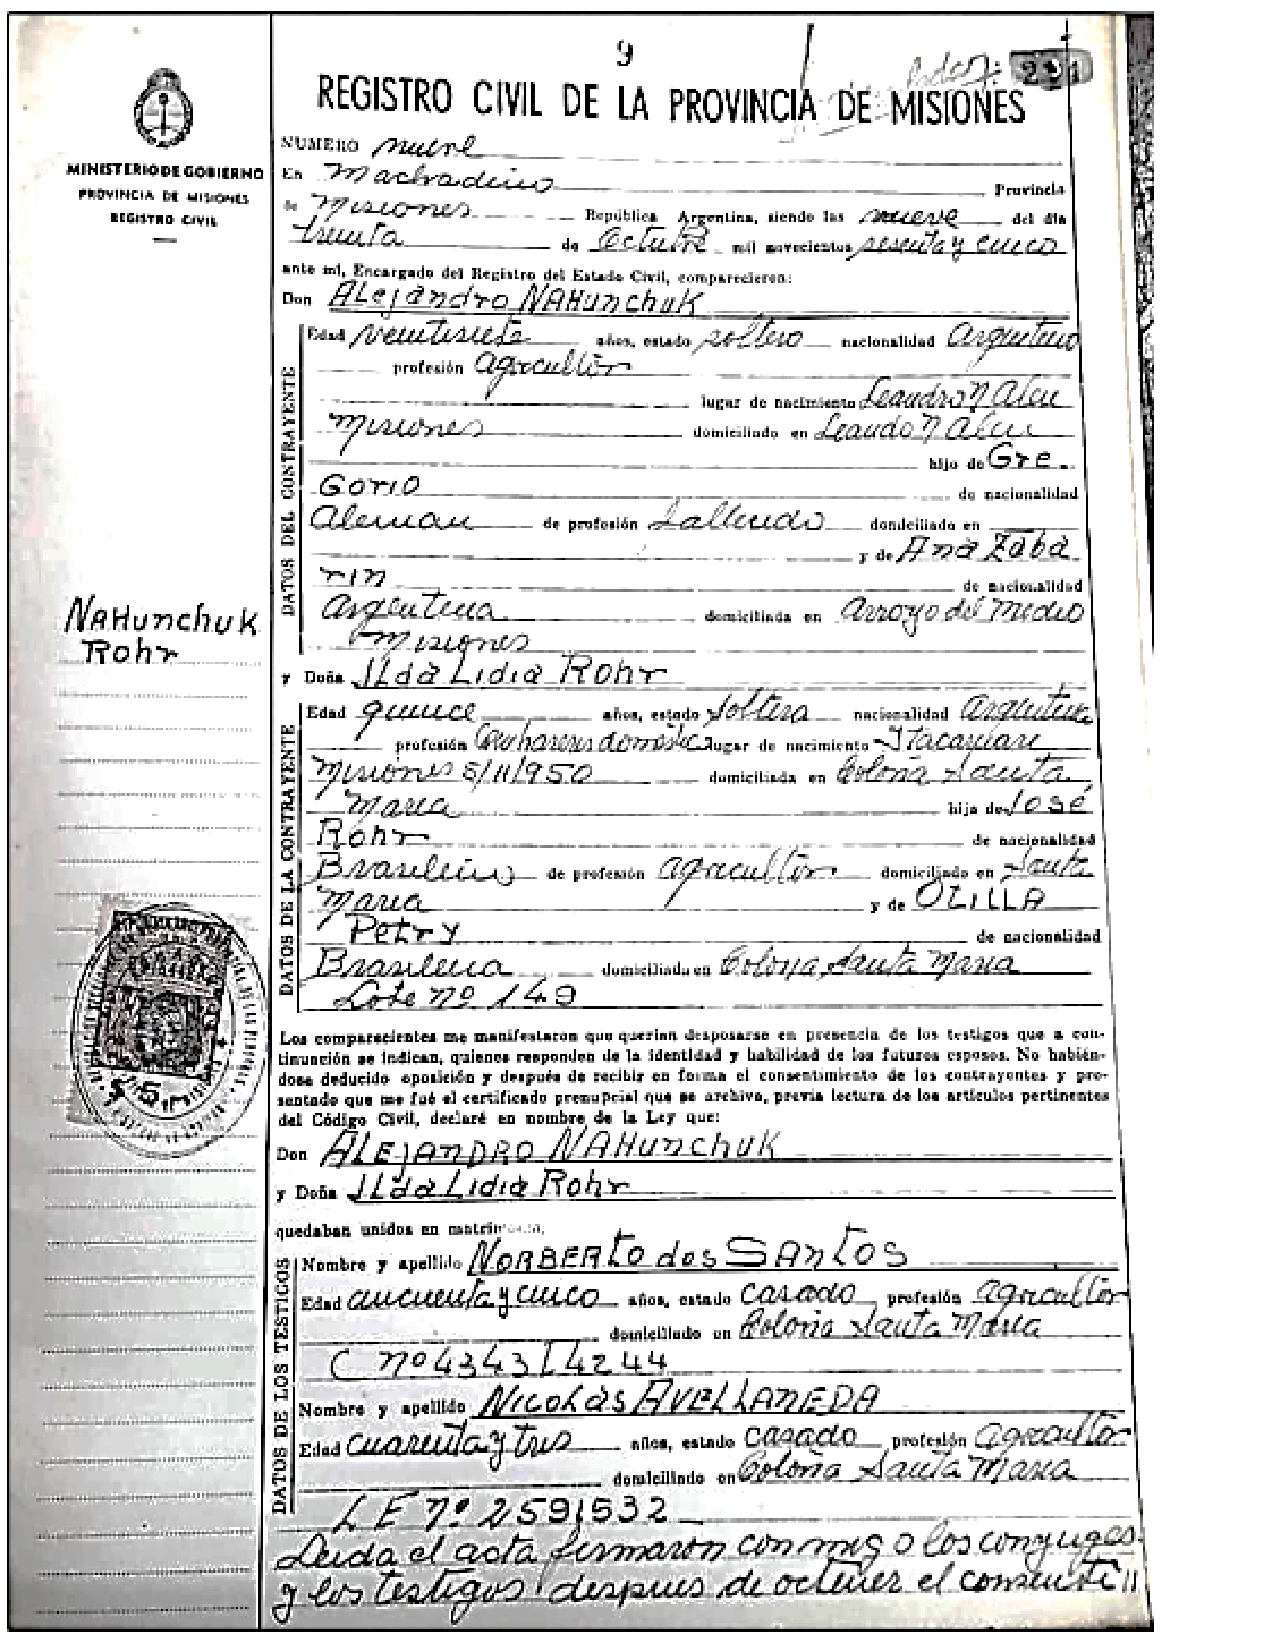 9
221
REGISTRO CIVIL DE LA PROVINCIA DE MISIONES
MINISTERIO DE GOBIERNO
PROVINCIA DE MISIONES
REGISTRO CIVIL
NUMERO nueve
En Machadiño Provincia
de Misiones República Argentina, siendo las nueve del día
treinta de Octubre mil novecientos sesenta y cinco
ante mí, Encargado del Registro del Estado Civil, comparecieron:
Don Alejandro NAHunchuK
DATOS DEL CONTRAYENTE
Edad veintisiete años, estado soltero nacionalidad Argentino
profesión agricultor
lugar de nacimiento Leandro N Alen
Misiones domiciliado en Leando N Alen
hijo de Gre.
Gorio de nacionalidad
Aleman de profesión Fallecido domiciliado en
y de Ana Zaba
rin de nacionalidad
Argentina domiciliada en Arroyo del Medio
Misiones
NAHunchuK
Rohr
y Doña ILda Lidia Rohr
DATOS DE LA CONTRAYENTE
Edad quince años, estado Soltera nacionalidad Argentina
profesión lugar de nacimiento Itacaruare
Misiones 5/11/950 domiciliada en Colonia Santa
Maria hija de José
Rohr de nacionalidad
Brasileño de profesión agricultor domiciliado en Santa
Maria y de OtiLLA
Petry de nacionalidad
Brasileña domiciliada en Colonia Santa Maria
Lote nº 149
Los comparecientes me manifestaron que querían desposarse en presencia de los testigos que a con-
tinuación se indican, quienes responden de la identidad y habilidad de los futuros esposos. No habién-
dose deducido oposición y después de recibir en forma el consentimiento de los contrayentes y pre-
sentado que me fué el certificado prenupcial que se archiva, previa lectura de los artículos pertinentes
del Código Civil, declaré en nombre de la Ley que:
Don ALEJANDRO NAHunchuK
y Doña ILda Lidia Rohr
quedaban unidos en matrimonio.
DATOS DE LOS TESTIGOS
Nombre y apellido NORBERto dos SAntos
Edad cincuenta y cinco años, estado casado profesión agricultor
domiciliado en Colonia Santa Maria
C nº 4343 14244
Nombre y apellido NicoLàs AVELLANEDA
Edad cuarenta y tres años, estado casado profesión agricultor
domiciliado en Colonia Santa Maria
L E nº 2591532
Leida el acta firmaron conmigo los conyuges
y los testigos despues de octener el consenti